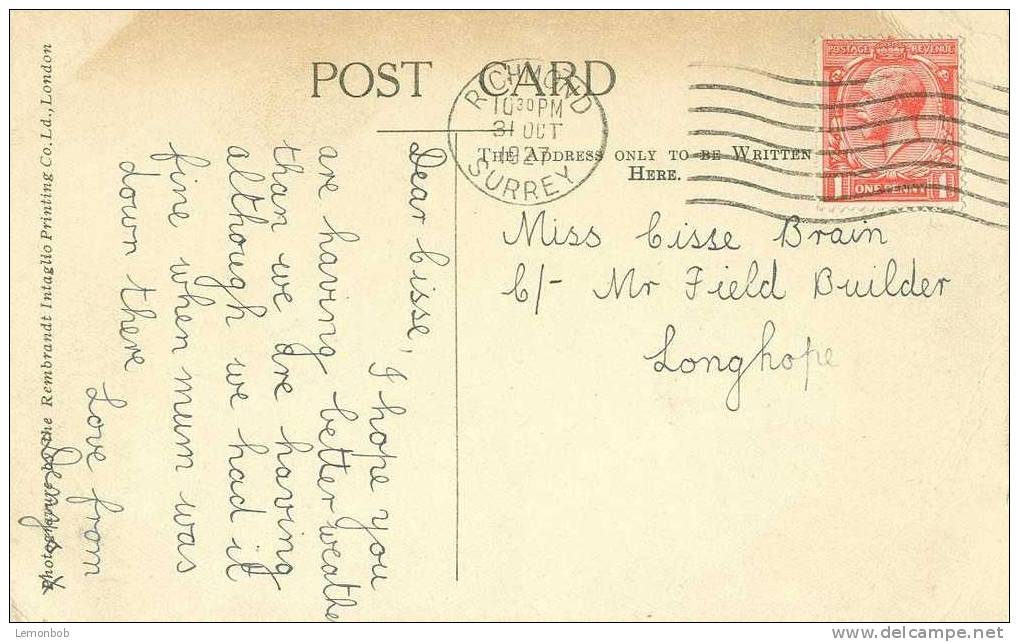 POST CARD
RICHMOND
10 30 PM
31 OCT
1927
SURREY
POSTAGE REVENUE
1 ONE PENNY 1
THE ADDRESS ONLY TO BE WRITTEN
HERE.
Miss Cisse Brain
C/- Mr Field Builder
Longhope
Dear Cisse,
I hope you
are having better weathe
than we are having
although we had it
fine when mum was
down there
Love from
Photogravure by the Rembrandt Intaglio Printing Co. Ld., London
Lemonbob
delcampe.net